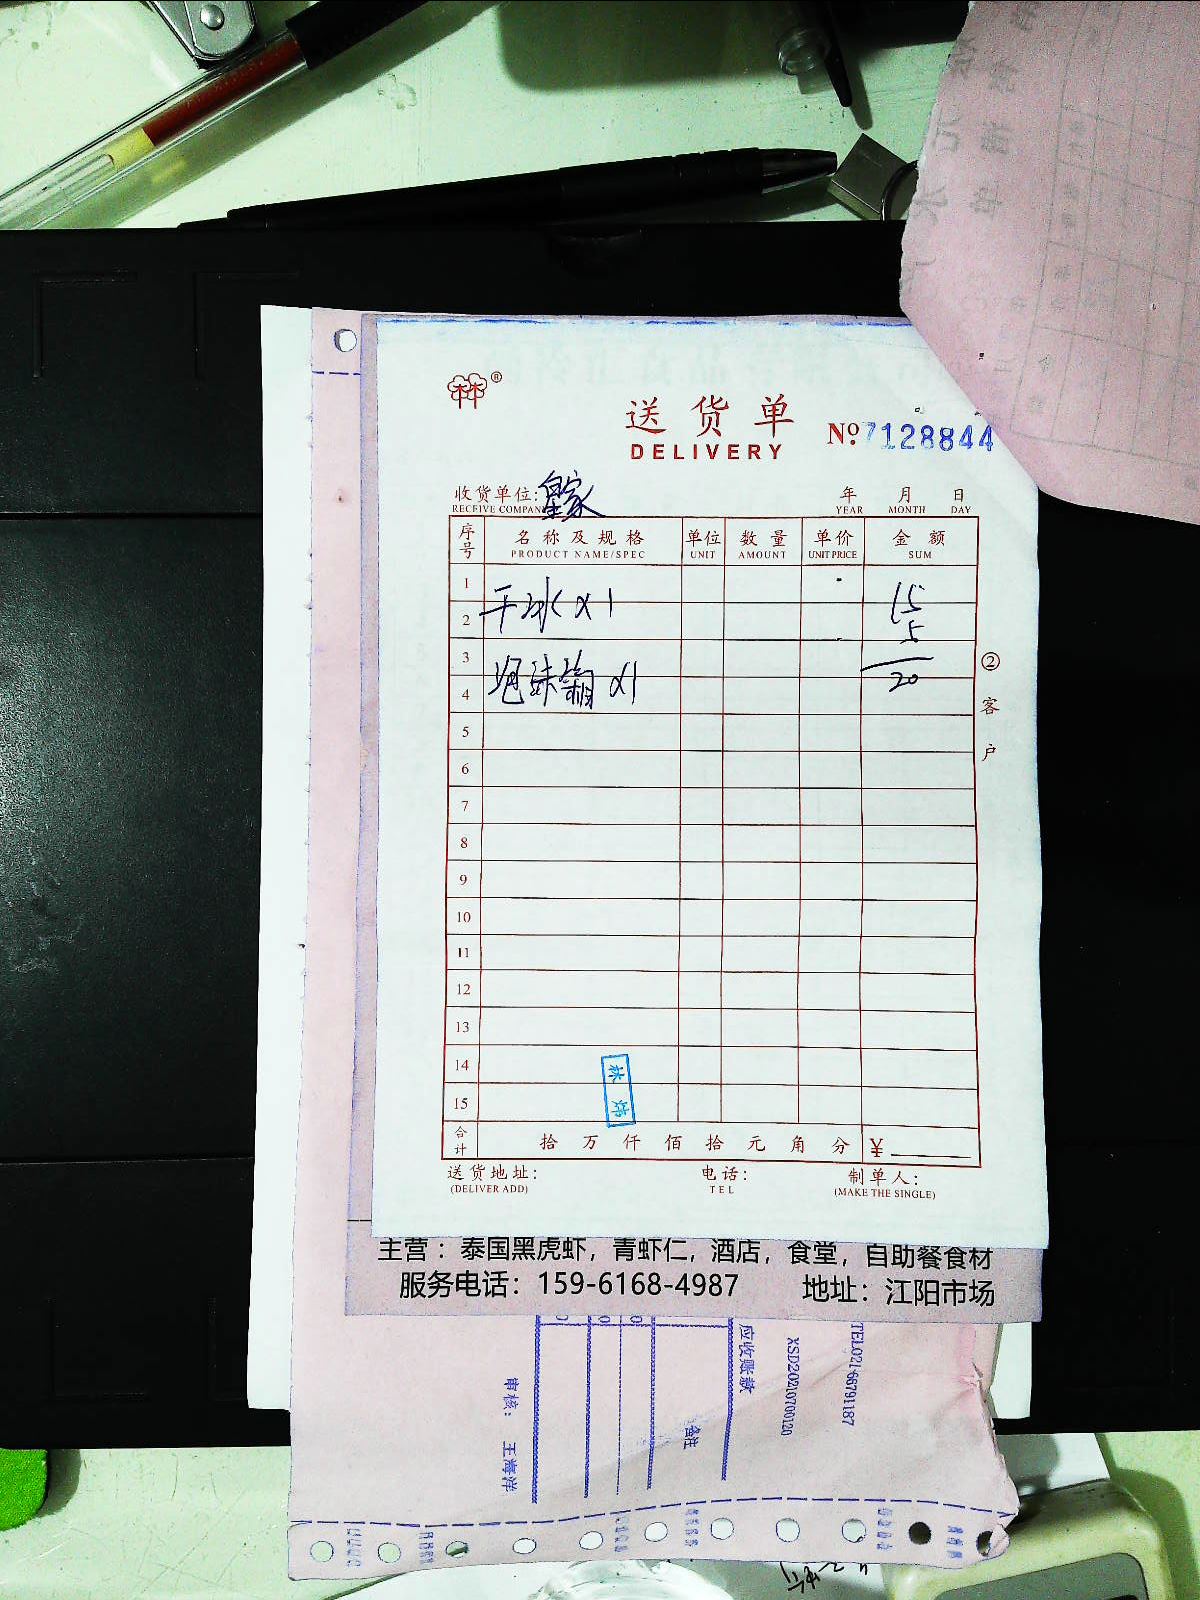 送货单
DELIVERY
№ 7128844
收货单位: 皇家
RECEIVE COMPAN
年 月 日
YEAR MONTH DAY
序号 名称及规格 单位 数量 单价 金额
PRODUCT NAME/SPEC UNIT AMOUNT UNIT PRICE SUM
1
干冰 x1 15
2
5
3
泡沫箱 x1 20
4
5
6
7
8
9
10
11
12
13
14
15
林炜
合计 拾 万 仟 佰 拾 元 角 分 ¥
送货地址: 电话: 制单人:
(DELIVER ADD) TEL (MAKE THE SINGLE)
② 客户
主营：泰国黑虎虾，青虾仁，酒店，食堂，自助餐食材
服务电话：159-6168-4987 地址：江阳市场
TEL021-66791187
XSD20210700120
应收账款
备注
审核： 王海洋